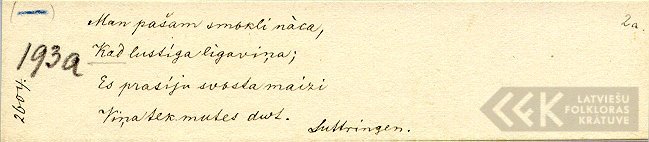 (—)
2a.
193a
2604.
Man pašam smokli nāca,
Kad lustiga ligaviņa;
Es prasiju svosta maizi
Viņa tek mutes dwt.
Luttringen.
LATVIEŠU
FOLKLORAS
KRĀTUVE